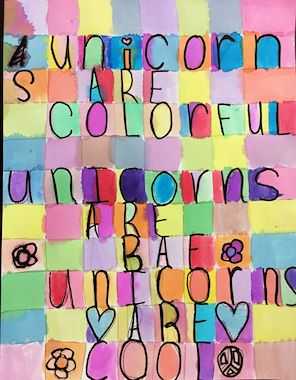 unicorn
S ARE
COLORFUL
unicorns
ARE
BAE
unicorns
ARE
COOL